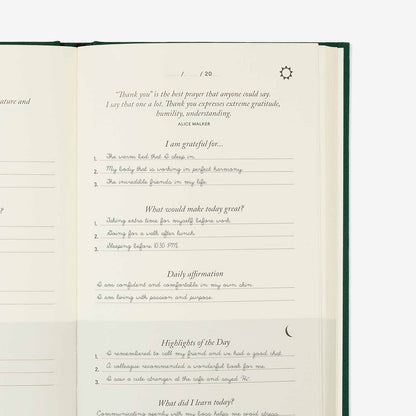 ature and
?
/ /20
“Thank you” is the best prayer that anyone could say.
I say that one a lot. Thank you expresses extreme gratitude,
humility, understanding.
ALICE WALKER
I am grateful for...
1. The warm bed that I sleep in.
2. My body that is working in perfect harmony.
3. The incredible friends in my life.
What would make today great?
1. Taking extra time for myself before work.
2. Going for a walk after lunch.
3. Sleeping before 10:30 PM.
Daily affirmation
I am confident and comfortable in my own skin.
I am living with passion and purpose.
Highlights of the Day
1. I remembered to call my friend and we had a good chat.
2. A colleague recommended a wonderful book for me.
3. I saw a cute stranger at the cafe and sayed 'Hi'.
What did I learn today?
Communicating openly with my boss helps me avoid stress.